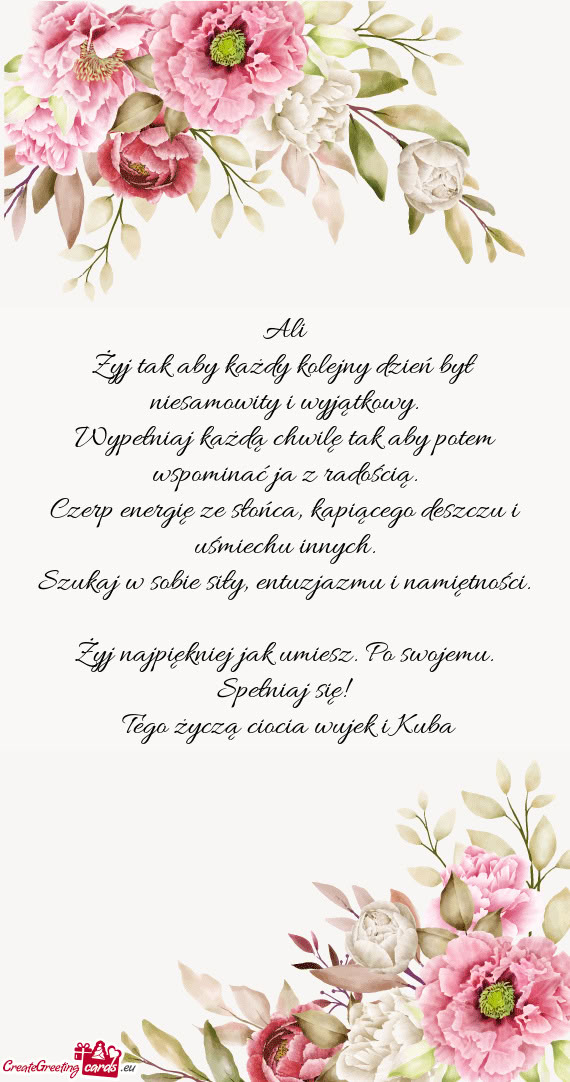 Ali
Żyj tak aby każdy kolejny dzień był
niesamowity i wyjątkowy.
Wypełniaj każdą chwilę tak aby potem
wspominać ja z radością.
Czerp energię ze słońca, kapiącego deszczu i
uśmiechu innych.
Szukaj w sobie siły, entuzjazmu i namiętności.
Żyj najpiękniej jak umiesz. Po swojemu.
Spełniaj się!
Tego życzą ciocia wujek i Kuba
CreateGreeting cards .eu